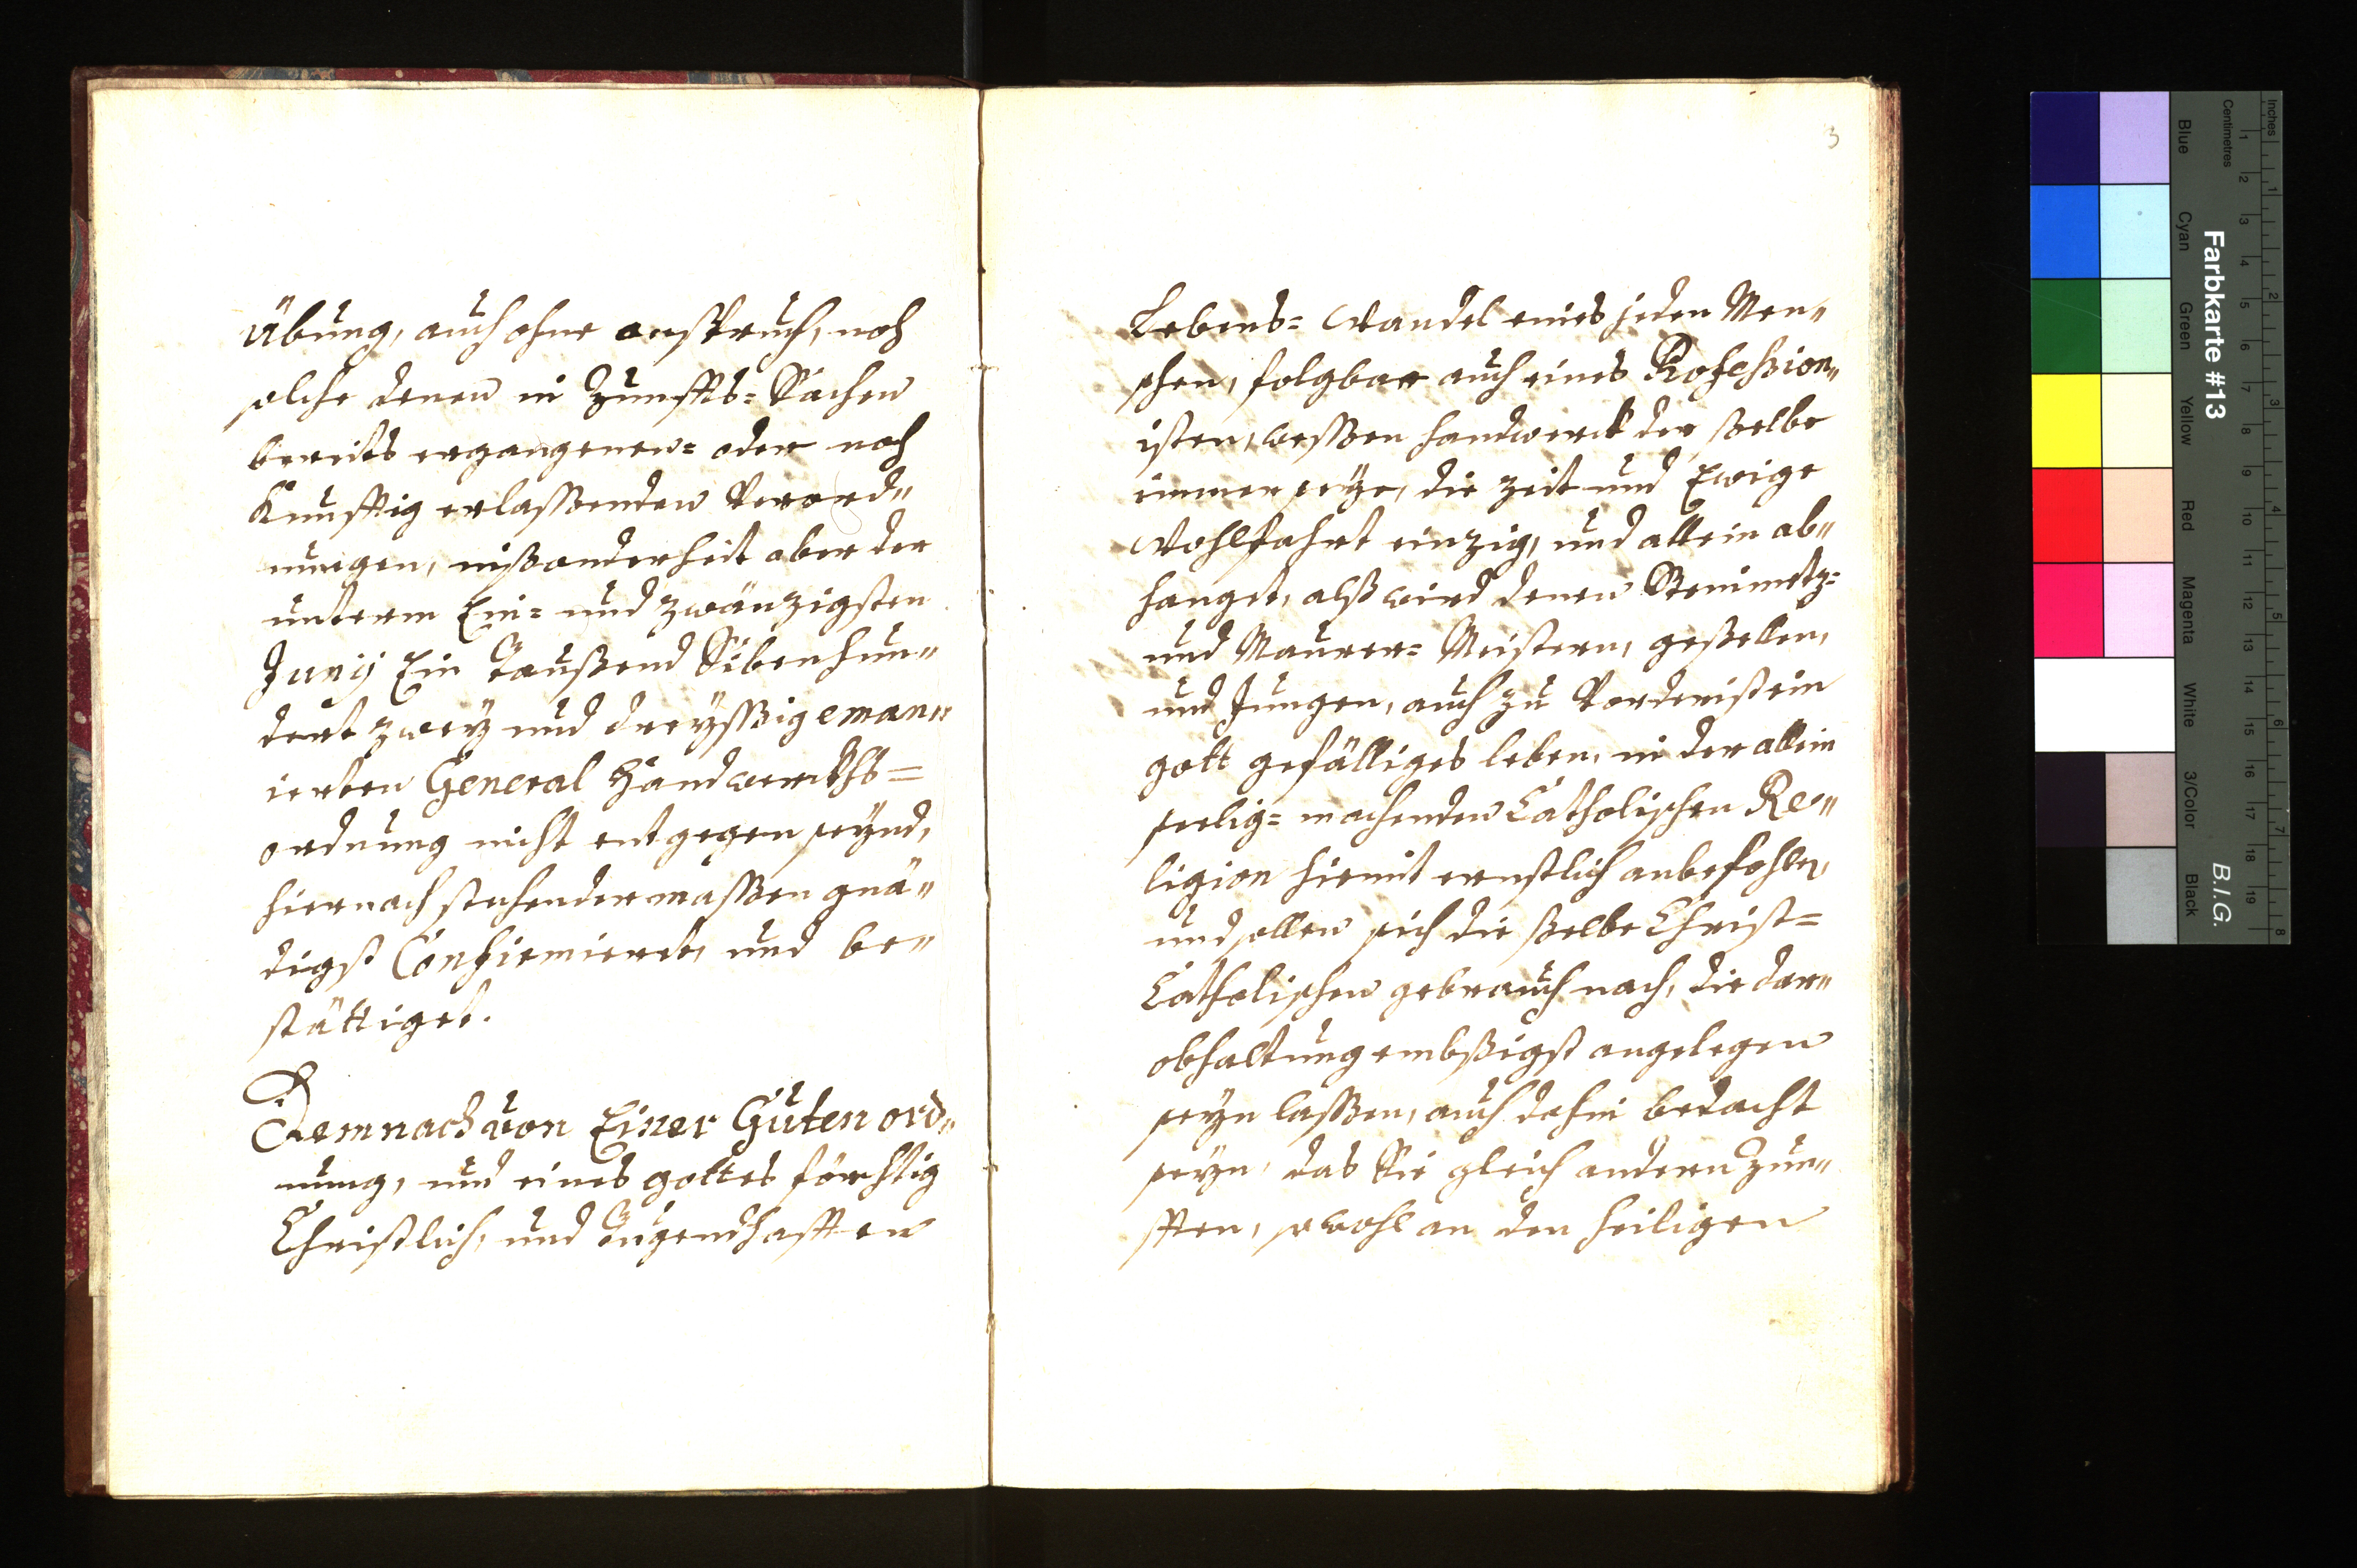 Übung, auch ohne anspruch, noch
solche denen in Zunffts= Sachen
bereits ergangenen= oder noch
Künfftig erlassenden Verord„
nungen, insonderheit aber der
unterm Ein= und zwänzigsten
Junij Ein Taußend Sibenhun„
dert zwey und dreyssig eman„
ierten General Handwerckhs=
ordnung nicht entgegen seynd,
hiernach stehendermassen gnä„
digst Confirmiert, und be„
stättiget.
Demnach von Einer Guten ord„
nung, und eines gottes förchtig
Christlich, und Tugendhafften
3
Lebens= Wandel eines jeden Men„
schen, folgbar auch eines Profession„
isten, wessen handwerck der selbe
immer seye, die zeit und Ewige
Wohlfahrt einzig, und allein ab„
hanget, alß wird denen Steinmetz=
und Maurer= Meistern, gesellen,
und Jungen, auch zu Vorderist ein
gott gefälliges leben, in der allein
seelig= machenden Catholischen Re„
ligion hiemit ernstlich anbefohlen,
und sollen sich die selbe Christ=
Catholischen gebrauch nach, die dar„
obhaltung embsigst angelegen
seyn lassen, auch dahin bedacht
seyn, das Sie gleich andern Zün„
fften, sowohl an den heiligen
Farbkarte #13
B.I.G.
Inches
Centimetres
1 2 3 4 5 6 7 8
1 2 3 4 5 6 7 8 9 10 11 12 13 14 15 16 17 18 19
Blue
Cyan
Green
Yellow
Red
Magenta
White
3/Color
Black